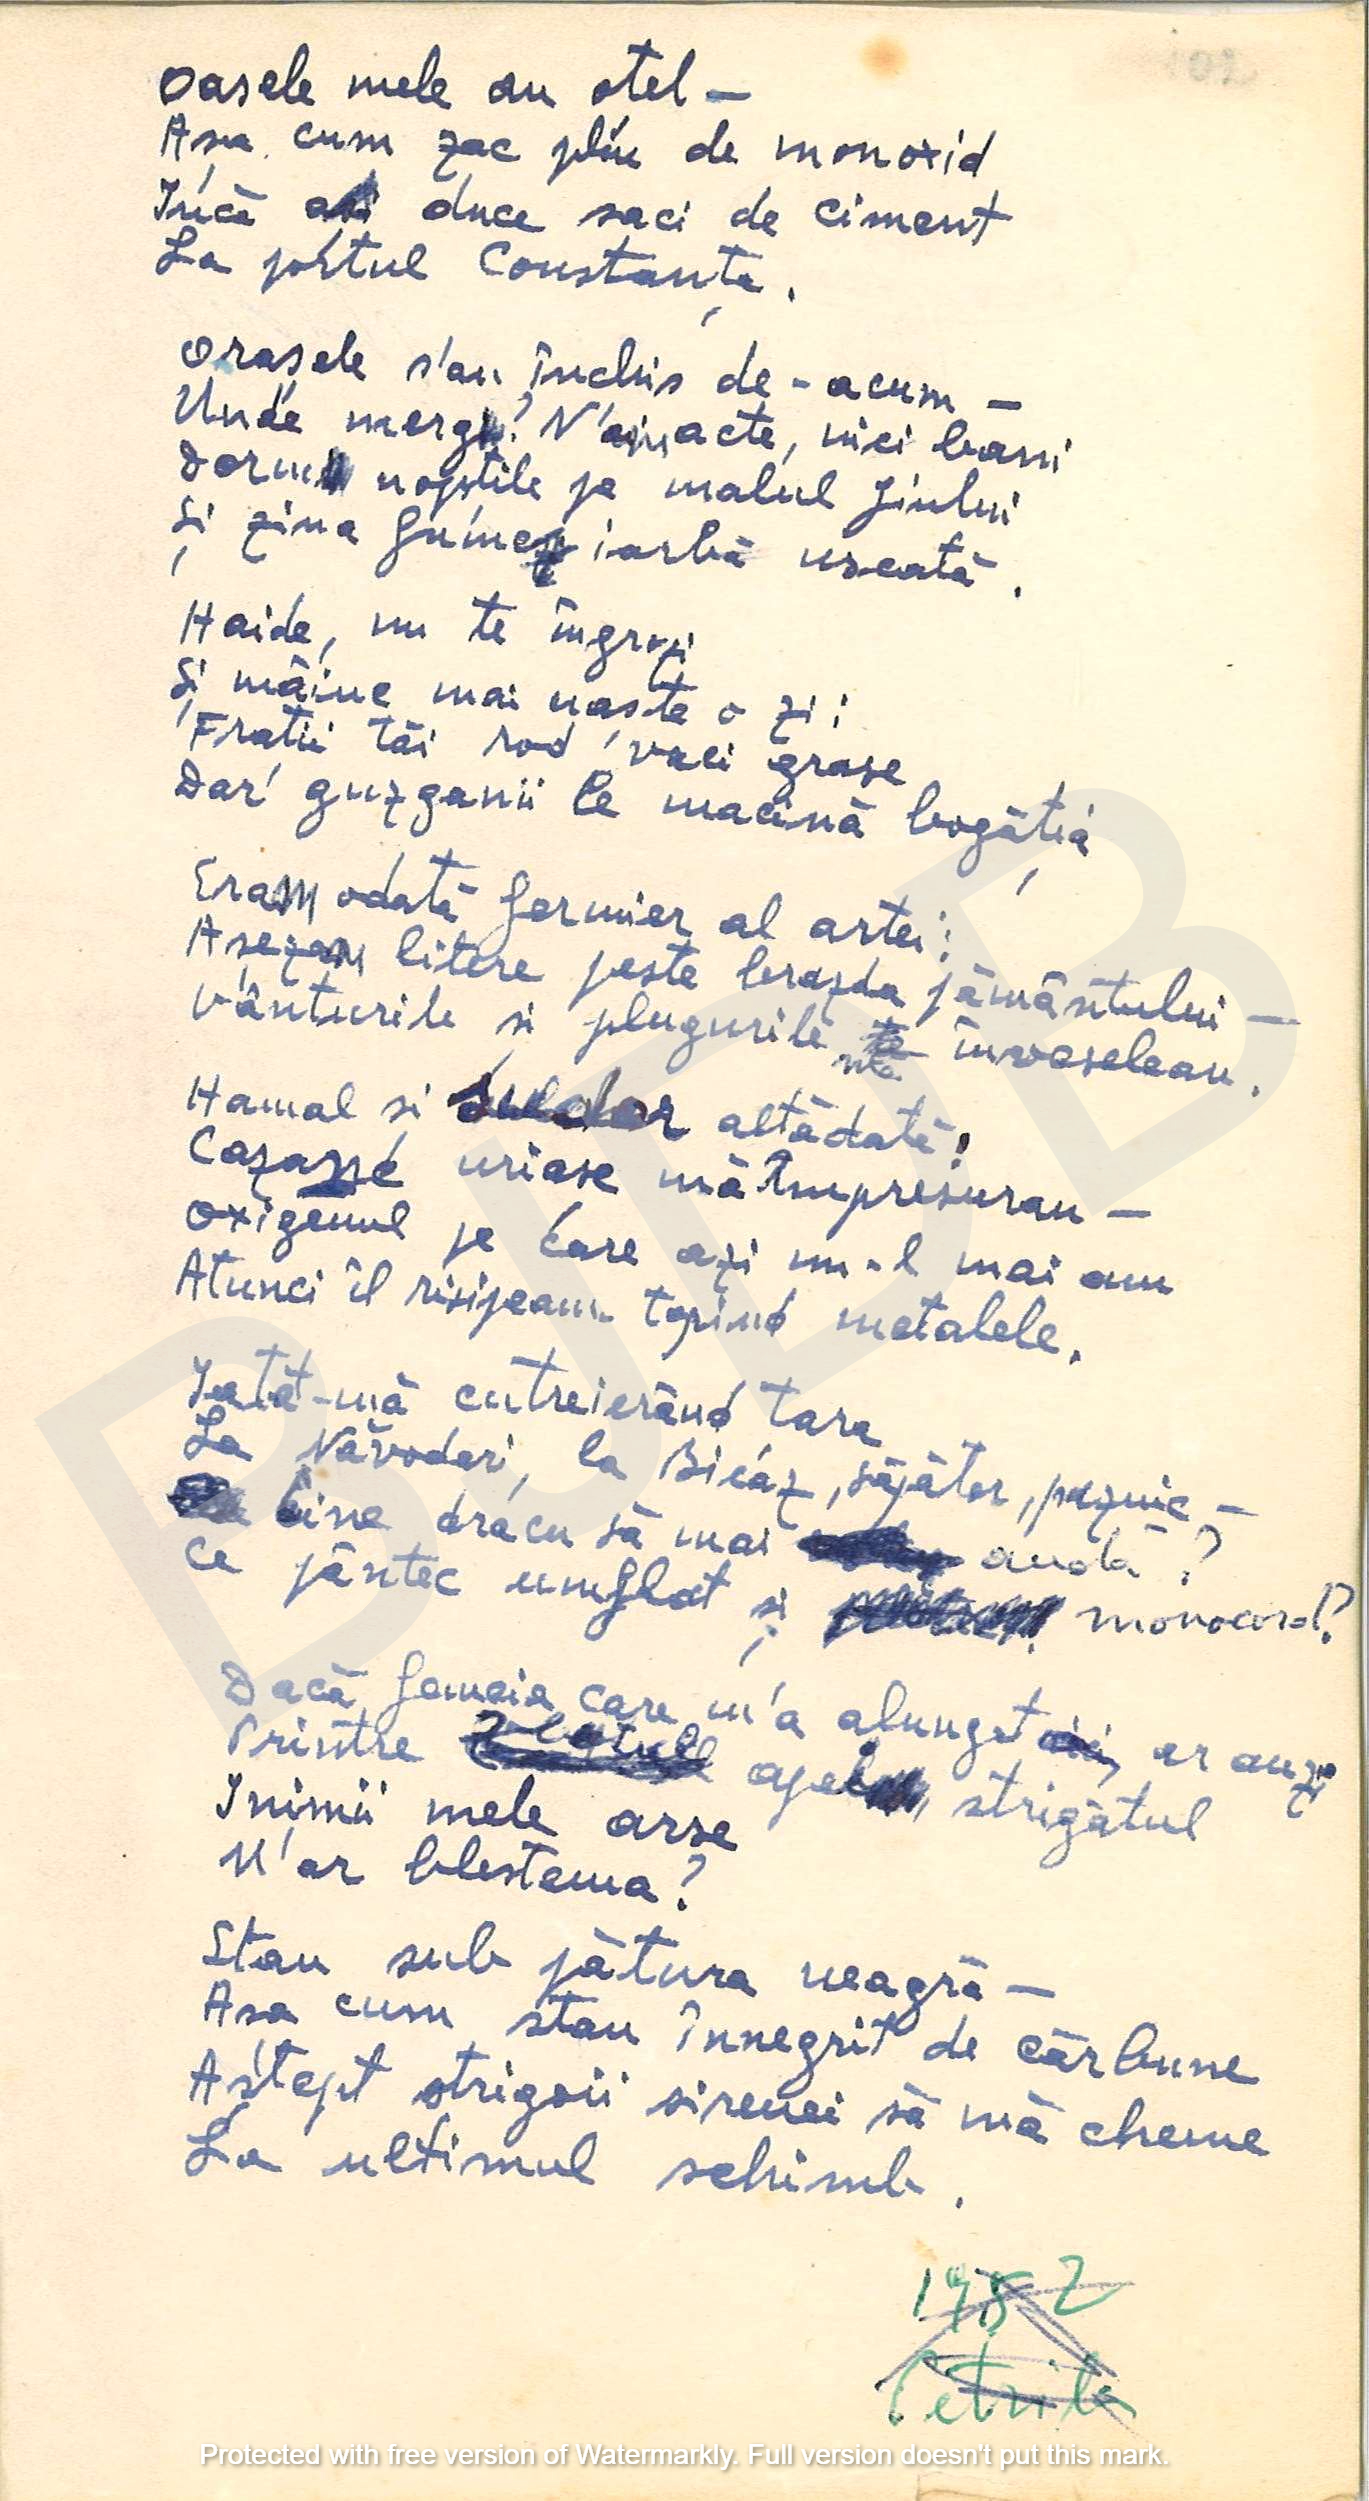 Oasele mele au oțel —
Așa cum zac plin de monoxid
Încă duce saci de ciment
La portul Constanța.
Orașele s'au închis de-acum —
Unde merg? N'am acte, nici bani
Dorm nopțile pe malul Jiului
Și ziua fumez iarbă uscată.
Haide, nu te îngropi
Și mâine mai naște o zi:
Frații tăi rod vaci grase
Dar guzganii le macină bogăția
Eram odată fermier al artei:
Așezam litere peste brazda pământului —
Vânturile și plugurile mă învaseleau.
Hamal și sudor altădată!
Cazane uriase mă împresurau —
Oxigenul pe care azi nu-l mai am
Atunci îl risipeam topind metalele.
Iată-mă cutreierând tara
La Năvodari, la Bicaz, săpător, paznic —
Cine dracu să mai audă?
Ce pântec umflat și monocord?
Dacă femeia care m'a alungat ar auzi
Printre apel, strigătul
Inimii mele arse
M'ar blestema?
Stau sub pătura neagră —
Asa cum stau înnegrit de cărbune
Aștept strigoii sirenei să mă cheme
La ultimul schimb.
1982
Petrila
BJDB
Protected with free version of Watermarkly. Full version doesn't put this mark.